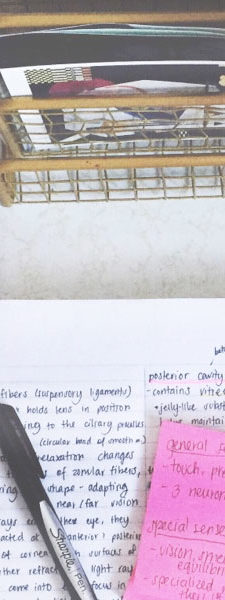 fibers (suspensory ligaments)
holds lens in position
ing to the ciliary processes
(circular band of smooth m
relaxation changes
of zonular fibers,
ring shape - adapting
near/far vision
ays eye, they
acted at anterior/posterior
of corn surfaces of
ther refrac light ray
come into focus in
Sharpie. pen
posterior cavity
- contains vitre
• jelly-like subst
maintai
general s
- touch, pr
- 3 neuron
special sense
- vision, sme
equilibri
- specialized